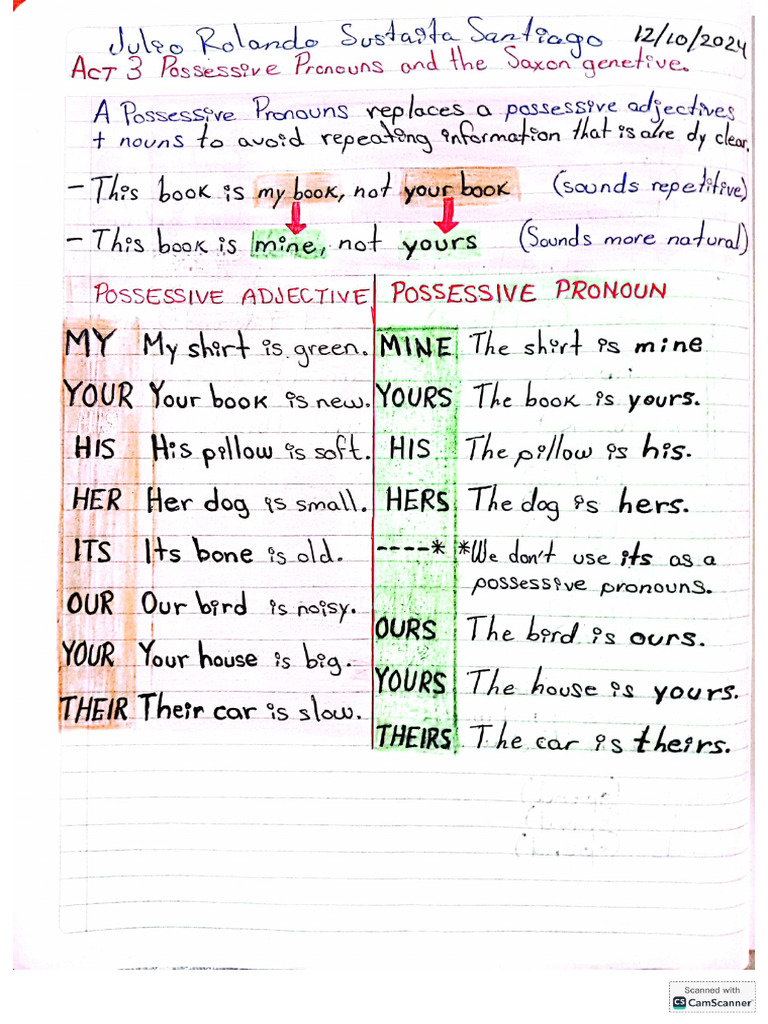 Julio Rolando Sustaita Santiago 12/10/2024
ACT 3 Possessive Pronouns and the Saxon genetive.
A Possessive Pronouns replaces a possessive adjectives
+ nouns to avoid repeating information that is alre dy clear.
- This book is my book, not your book (sounds repetitive)
- This book is mine, not yours (Sounds more natural)
POSSESSIVE ADJECTIVE POSSESSIVE PRONOUN
MY My shirt is green. MINE The shirt is mine
YOUR Your book is new. YOURS The book is yours.
HIS His pillow is soft. HIS The pillow is his.
HER Her dog is small. HERS The dog is hers.
ITS Its bone is old. ----* *We don't use its as a
possessive pronouns.
OUR Our bird is noisy. OURS The bird is ours.
YOUR Your house is big. YOURS The house is yours.
THEIR Their car is slow. THEIRS The car is theirs.
Scanned with
CS CamScanner